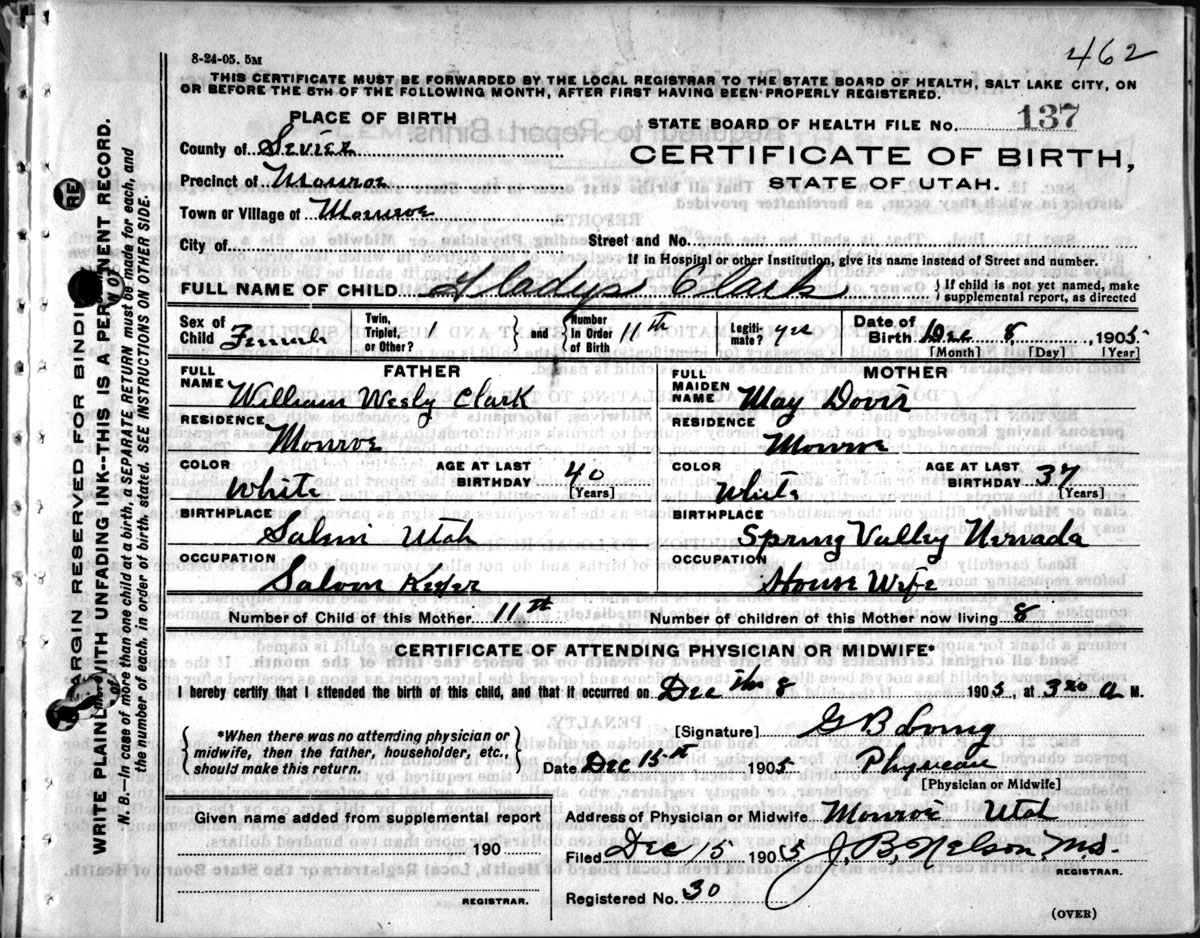 462
8-24-05. 5M
THIS CERTIFICATE MUST BE FORWARDED BY THE LOCAL REGISTRAR TO THE STATE BOARD OF HEALTH, SALT LAKE CITY, ON
OR BEFORE THE 5TH OF THE FOLLOWING MONTH, AFTER FIRST HAVING BEEN PROPERLY REGISTERED.
PLACE OF BIRTH
STATE BOARD OF HEALTH FILE No. 137
County of Sevier
CERTIFICATE OF BIRTH,
Precinct of Monroe
STATE OF UTAH.
Town or Village of Monroe
City of
Street and No.
If in Hospital or other Institution, give its name instead of Street and number.
FULL NAME OF CHILD Gladys Clark
{ If child is not yet named, make
supplemental report, as directed
Sex of Child Female
Twin, Triplet, or Other? 1
} and {
Number in Order of Birth 11th
Legiti- mate? yes
Date of Birth Dec 8, 1905
[Month] [Day] [Year]
FATHER
FULL NAME William Wesly Clark
RESIDENCE Monroe
COLOR White
AGE AT LAST BIRTHDAY 40
[Years]
BIRTHPLACE Salini Utah
OCCUPATION Saloon Keper
MOTHER
FULL MAIDEN NAME May
RESIDENCE Monroe
COLOR White
AGE AT LAST BIRTHDAY 37
[Years]
BIRTHPLACE Spring Valley Nervada
OCCUPATION House Wife
Number of Child of this Mother 11th
Number of children of this Mother now living 8
CERTIFICATE OF ATTENDING PHYSICIAN OR MIDWIFE*
I hereby certify that I attended the birth of this child, and that it occurred on Dec ths 8 1905, at 3 30 a M.
{ *When there was no attending physician or
midwife, then the father, householder, etc.,
should make this return. }
[Signature] G B
Date Dec 15st 1905 Physician
[Physician or Midwife]
Given name added from supplemental report
190
REGISTRAR.
Address of Physician or Midwife Monroe Utah
Filed Dec 15 1905 J. B. Nelson, M.D.
REGISTRAR.
Registered No. 30
(OVER)
MARGIN RESERVED FOR BINDING
WRITE PLAINLY WITH UNFADING INK--THIS IS A PERMANENT RECORD.
N. B.—In case of more than one child at a birth, a SEPARATE RETURN must be made for each, and
the number of each, in order of birth, stated. SEE INSTRUCTIONS ON OTHER SIDE.